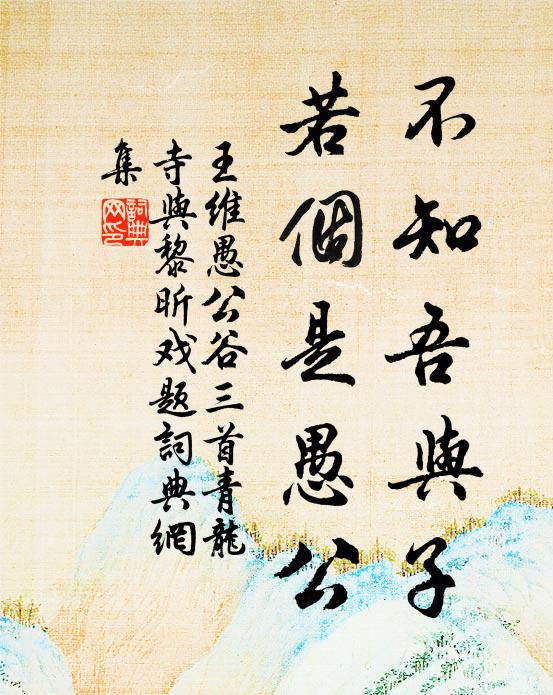 不知吾與子
若個是愚公
王維愚公谷三首青龍
寺與黎昕戏题詞典網
集
詞典
网印